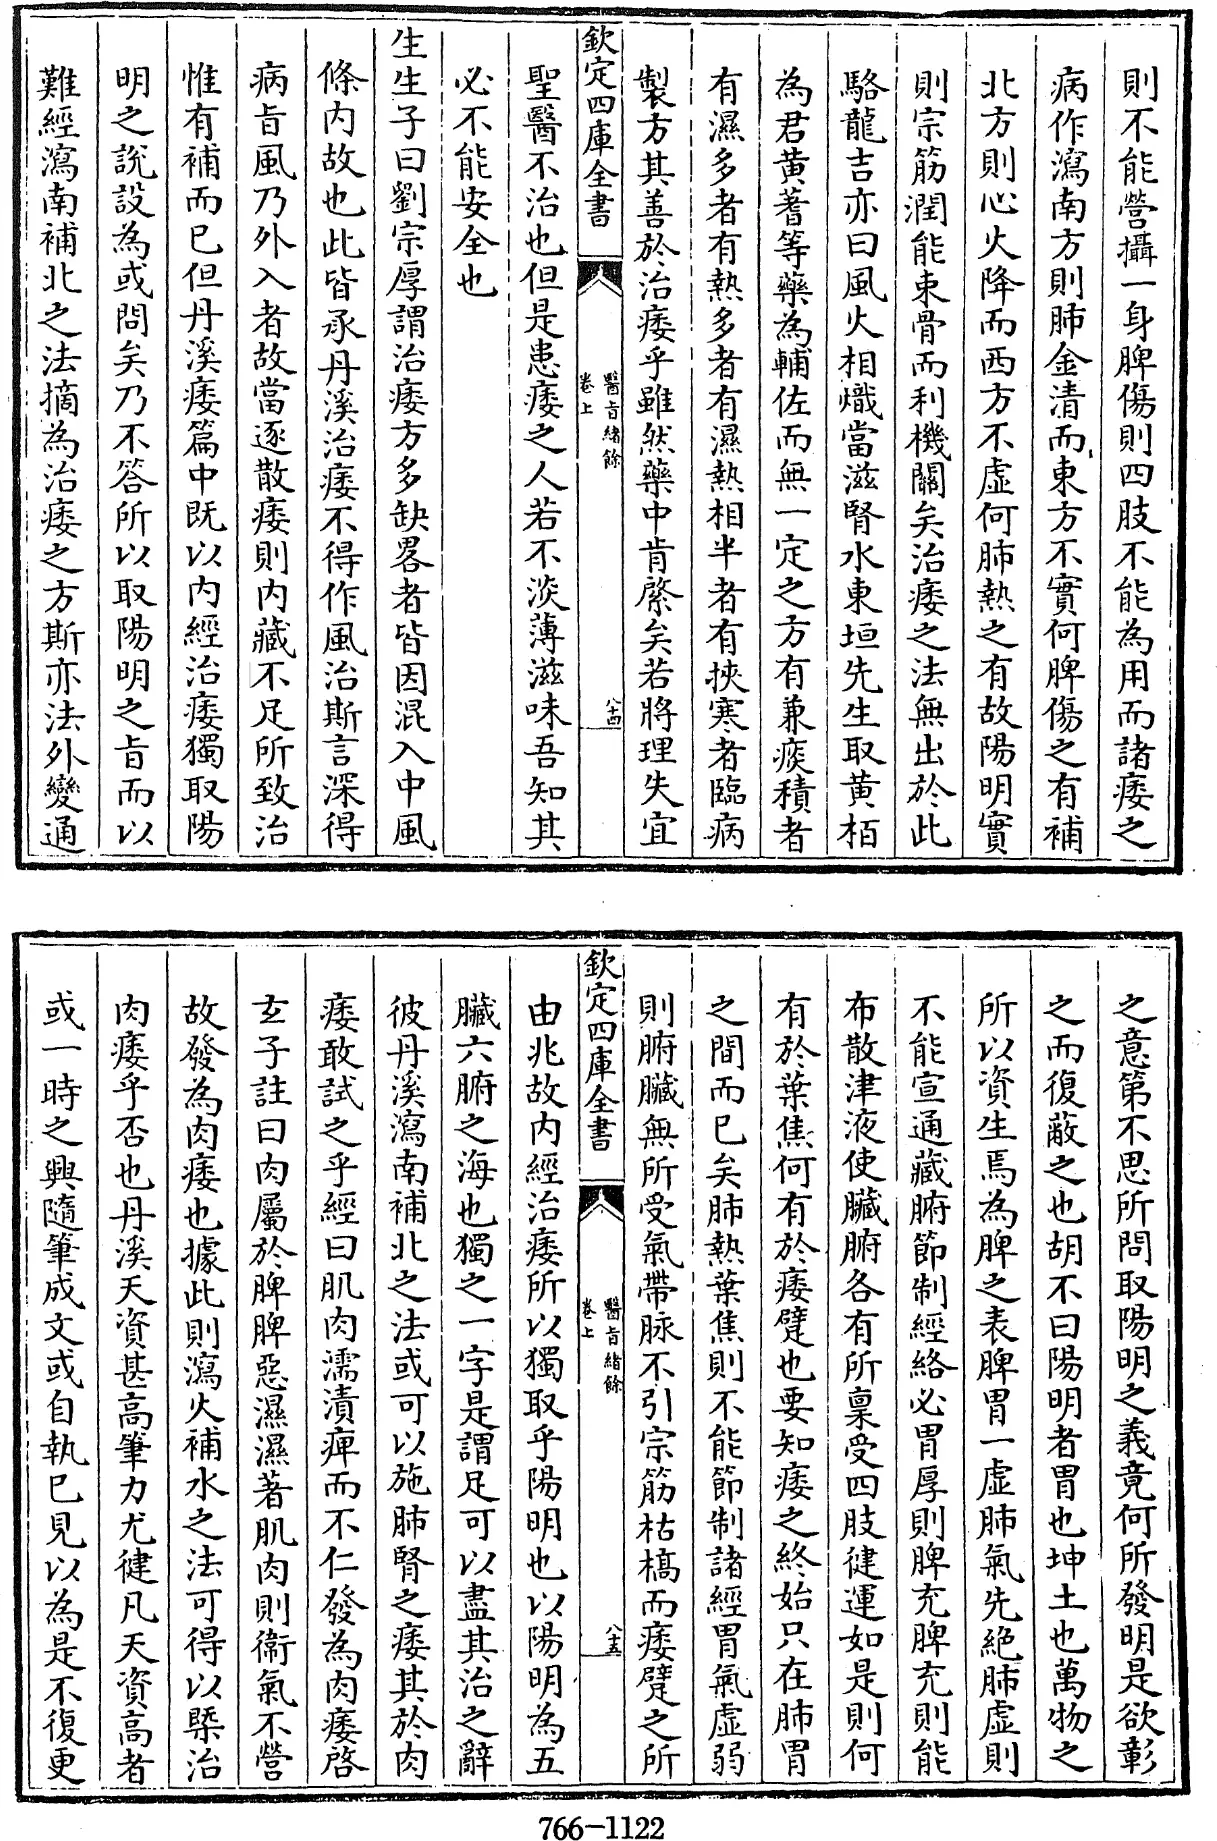 則不能營攝一身脾傷則四肢不能為用而諸痿之
病作瀉南方則肺金清而東方不實何脾傷之有補
北方則心火降而西方不虛何肺熱之有故陽明實
則宗筋潤能束骨而利機關矣治痿之法無出於此
駱龍吉亦曰風火相熾當滋腎水東垣先生取黄栢
為君黄蓍等藥為輔佐而無一定之方有兼痰積者
有濕多者有熱多者有濕熱相半者有挾寒者臨病
製方其善於治痿乎雖然藥中肯綮矣若將理失宜
欽定四庫全書
醫旨緒餘
卷上
八十四
聖醫不治也但是患痿之人若不淡薄滋味吾知其
必不能安全也
生生子曰劉宗厚謂治痿方多缺畧者皆因混入中風
條内故也此皆承丹溪治痿不得作風治斯言深得
病旨風乃外入者故當逐散痿則内藏不足所致治
惟有補而已但丹溪痿篇中既以内經治痿獨取陽
明之說設為或問矣乃不答所以取陽明之旨而以
難經瀉南補北之法摘為治痿之方斯亦法外變通
之意第不思所問取陽明之義竟何所發明是欲彰
之而復蔽之也胡不曰陽明者胃也坤土也萬物之
所以資生焉為脾之表脾胃一虛肺氣先絶肺虛則
不能宣通藏腑節制經絡必胃厚則脾充脾充則能
布散津液使臟腑各有所稟受四肢健運如是則何
有於葉焦何有於痿躄也要知痿之終始只在肺胃
之間而已矣肺熱葉焦則不能節制諸經胃氣虛弱
則腑臟無所受氣帶脉不引宗筋枯槁而痿躄之所
欽定四庫全書
醫旨緒餘
卷上
八十五
由兆故内經治痿所以獨取乎陽明也以陽明為五
臟六腑之海也獨之一字是謂足可以盡其治之辭
彼丹溪瀉南補北之法或可以施肺腎之痿其於肉
痿敢試之乎經曰肌肉濡漬痺而不仁發為肉痿啓
玄子註曰肉屬於脾脾惡濕濕著肌肉則衛氣不營
故發為肉痿也據此則瀉火補水之法可得以槩治
肉痿乎否也丹溪天資甚高筆力尤健凡天資高者
或一時之興隨筆成文或自執已見以為是不復更
766-1122